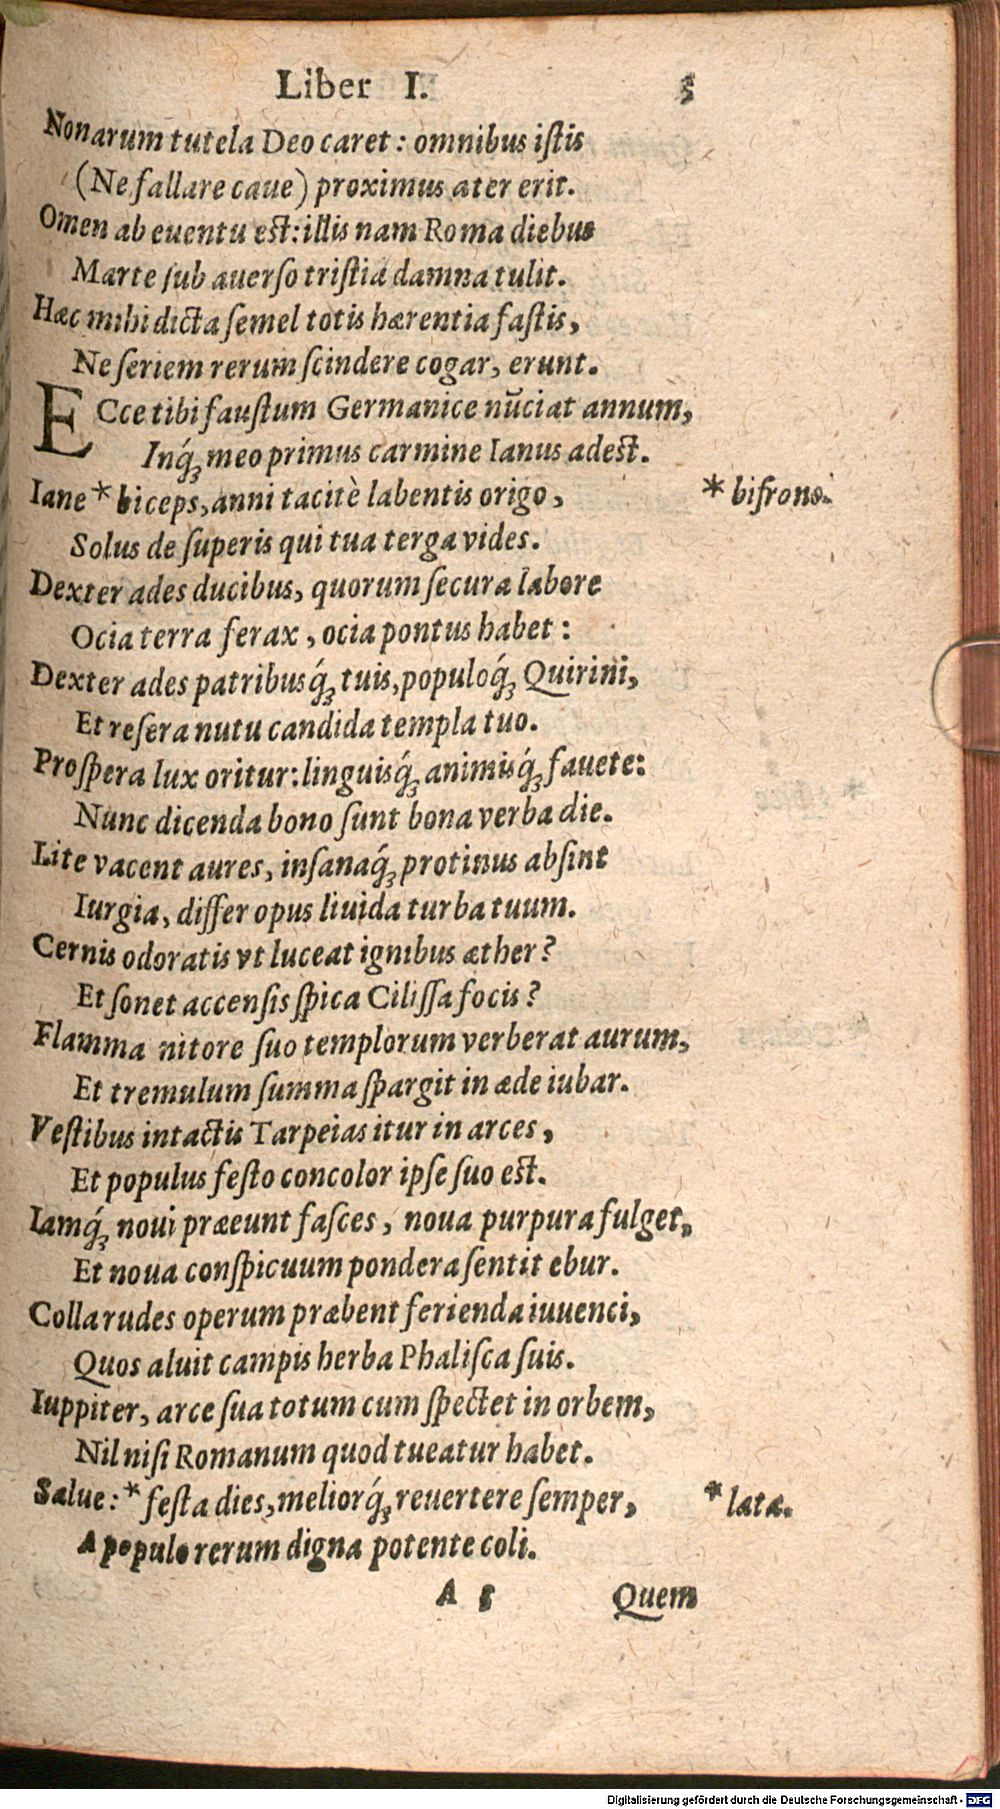 Liber I. 5
Nonarum tutela Deo caret: omnibus istis
(Ne fallare caue) proximus ater erit.
Omen ab euentu est: illis nam Roma diebus
Marte sub auerso tristia damna tulit.
Hæc mihi dicta semel totis hærentia fastis,
Ne seriem rerum scindere cogar, erunt.
ECce tibi faustum Germanice nūciat annum,
Inq́; meo primus carmine Ianus adest.
Iane * biceps, anni tacitè labentis origo, * bifrons.
Solus de superis qui tua terga vides.
Dexter ades ducibus, quorum secura labore
Ocia terra ferax, ocia pontus habet:
Dexter ades patribusq́; tuis, populoq́; Quirini,
Et resera nutu candida templa tuo.
Prospera lux oritur: linguisq́; animisq́; fauete:
Nunc dicenda bono sunt bona verba die.
Lite vacent aures, insanaq́; protinus absint
Iurgia, differ opus liuida turba tuum.
Cernis odoratis vt luceat ignibus æther?
Et sonet accensis spica Cilissa focis?
Flamma nitore suo templorum verberat aurum,
Et tremulum summa spargit in æde iubar.
Vestibus intactis Tarpeias itur in arces,
Et populus festo concolor ipse suo est.
Iamq́; noui præeunt fasces, noua purpura fulget,
Et noua conspicuum pondera sentit ebur.
Colla rudes operum præbent ferienda iuuenci,
Quos aluit campis herba Phalisca suis.
Iuppiter, arce sua totum cum spectet in orbem,
Nil nisi Romanum quod tueatur habet.
Salue: * festa dies, meliorq́; reuertere semper, * læta.
A populo rerum digna potente coli.
A 5 Quem
Digitalisierung gefördert durch die Deutsche Forschungsgemeinschaft - DFG